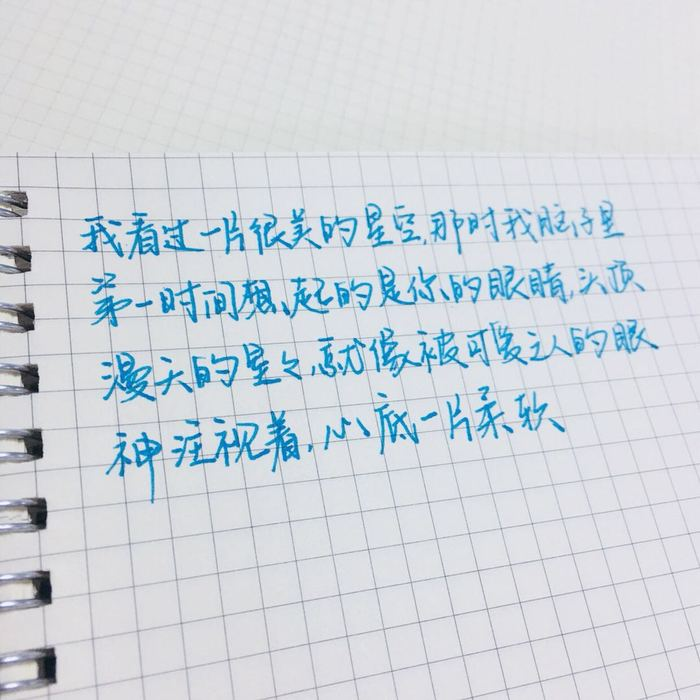 我看过一片很美的星空,那时我脑子里
第一时间想起的是你的眼睛,头顶
漫天的星々,就像被可爱之人的眼
神注视着,心底一片柔软